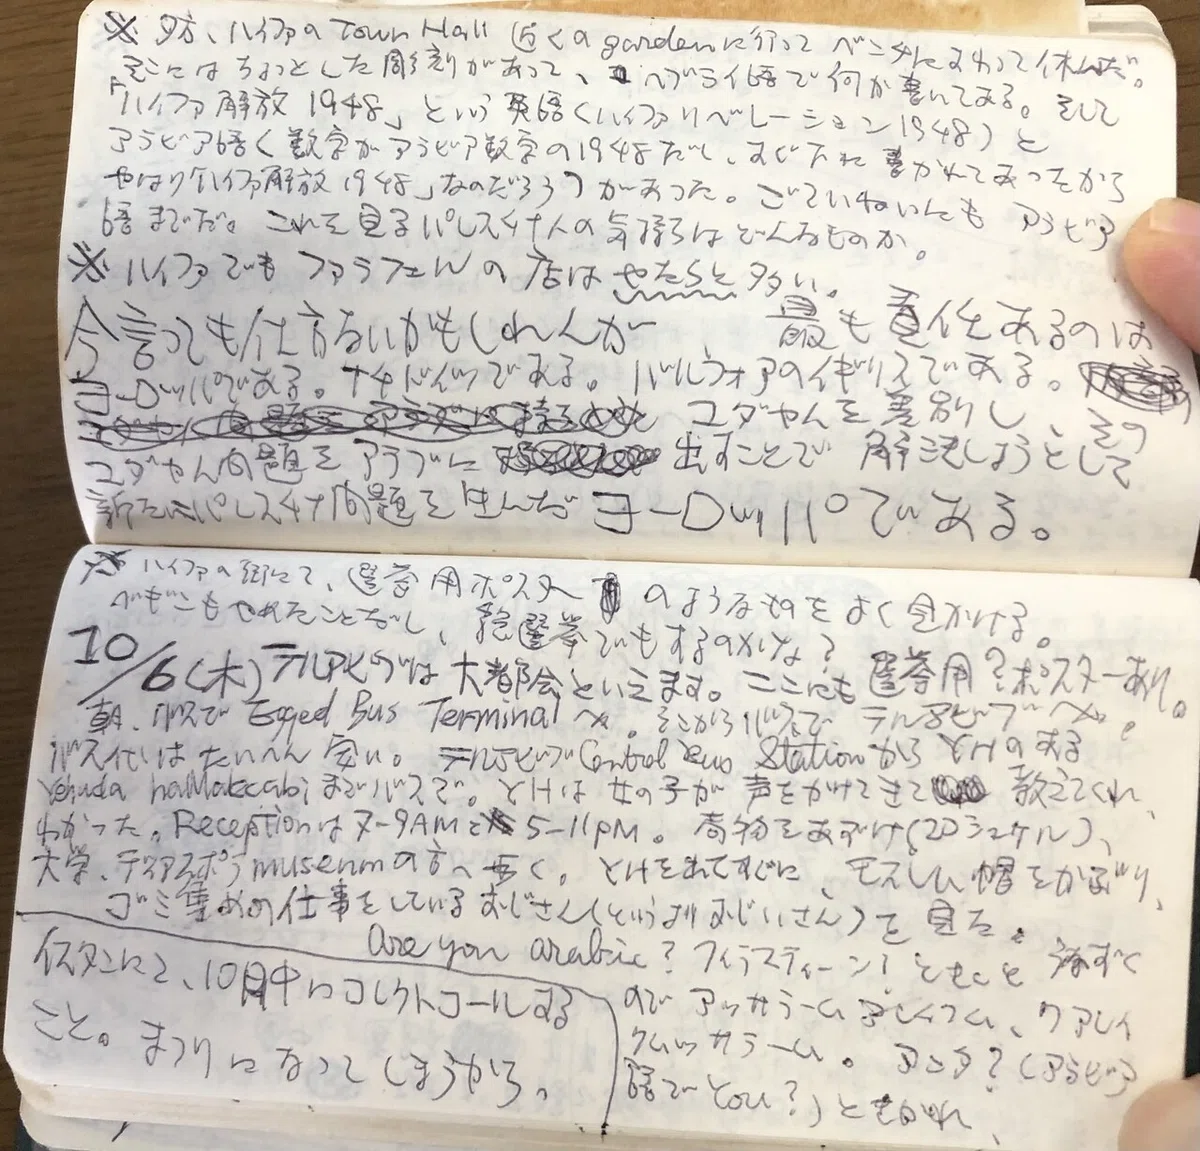 ※ 夕方、ハイファのTown Hall 近くのgardenに行って ベンチにすわって休んだ。
そこにはちょっとした彫刻があって、ヘブライ語で何か書いてある。そして
「ハイファ解放 1948」という英語(ハイファリベレーション1948)と
アラビア語(数字がアラビア数字の1948だし、まじたに書かれてあったから
やはり「ハイファ解放 1948」なのだろう)があった。ごていねいにも アラビア
語までだ。これを見るパレスチナ人の気持ちはどんなものか。
※ ハイファでもファラフェルの店は やたらと多い。
今言っても仕方ないかもしれんが 最も責任あるのは
ヨーロッパである。ナチドイツである。バルフォアのイギリスである。
ユダヤ人を差別し、その
ユダヤ人問題をアラブに 出すことで 解決しようとして
新たにパレスチナ問題を生んだ ヨーロッパである。
※ ハイファの街にて、選挙用ポスター のようなものをよく見かける。
ベギンもやめたことだし、総選挙でもするのかな?
10/6(木) テルアビブは大都会といえます。ここにも選挙用?ポスターあり。
朝、バスで Egged Bus Terminal へ。そこからバスで テルアビブへ。
バス代はたいへん安い。テルアビブCentral Bus Stationから YHのある
Yehuda haMakcabiまでバスで。YHは女の子が声をかけてきて 教えてくれ、
わかった。Receptionは7-9AMと5-11PM。荷物をあずけ(20シェケル)、
大学、ディアスポラmuseumの方へ歩く。YHを出てすぐに、モスレム帽をかぶり、
ゴミ集めの仕事をしているおじさん(というよりおじいさん)を見た。
Are you arabic? フィラスティーン? ともこと うなずく
ので アッサラーム アレイクム、ワアレイ
クムッサラーム。 アンタ?(アラビア
語でYou?)ときかれ、
イスタンにて、10月中にコレクトコールする
こと。まつりになってしまうから。